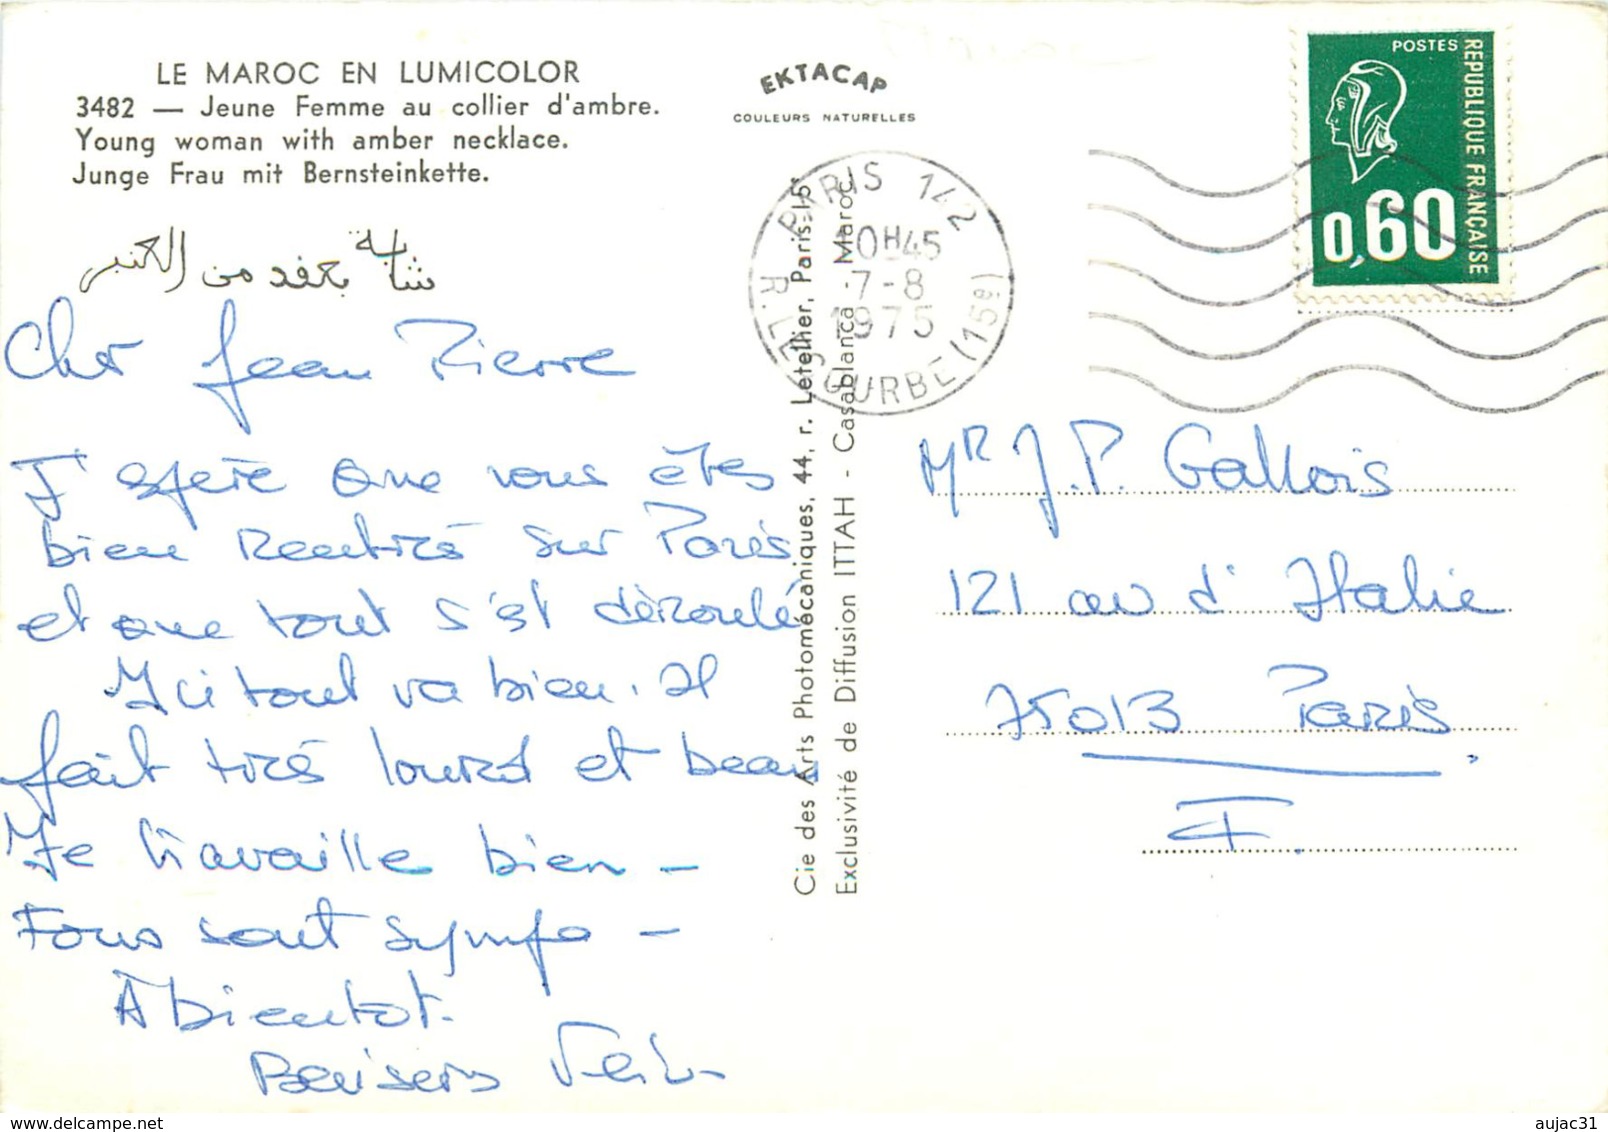 LE MAROC EN LUMICOLOR
3482 — Jeune Femme au collier d'ambre.
Young woman with amber necklace.
Junge Frau mit Bernsteinkette.
شابة بعقد من العنبر
EKTACAP
COULEURS NATURELLES
POSTES
REPUBLIQUE FRANÇAISE
0,60
PARIS 142
10H45
7-8
1975
R. LECOURBE (15e)
Cie des Arts Photomécaniques, 44, r. Letellier, Paris-15e
Exclusivité de Diffusion ITTAH - Casablanca - Maroc
Cher Jean Pierre
J'espère que vous êtes
bien rentrés sur Paris
et que tout s'est déroulé
Ici tout va bien. Il
fait très lourd et beau
Je travaille bien —
Tous sont sympa —
À bientot.
Baisers
Mr J.P. Gallois
121 av d'Italie
75013 Paris
F.
www.delcampe.net
aujac31